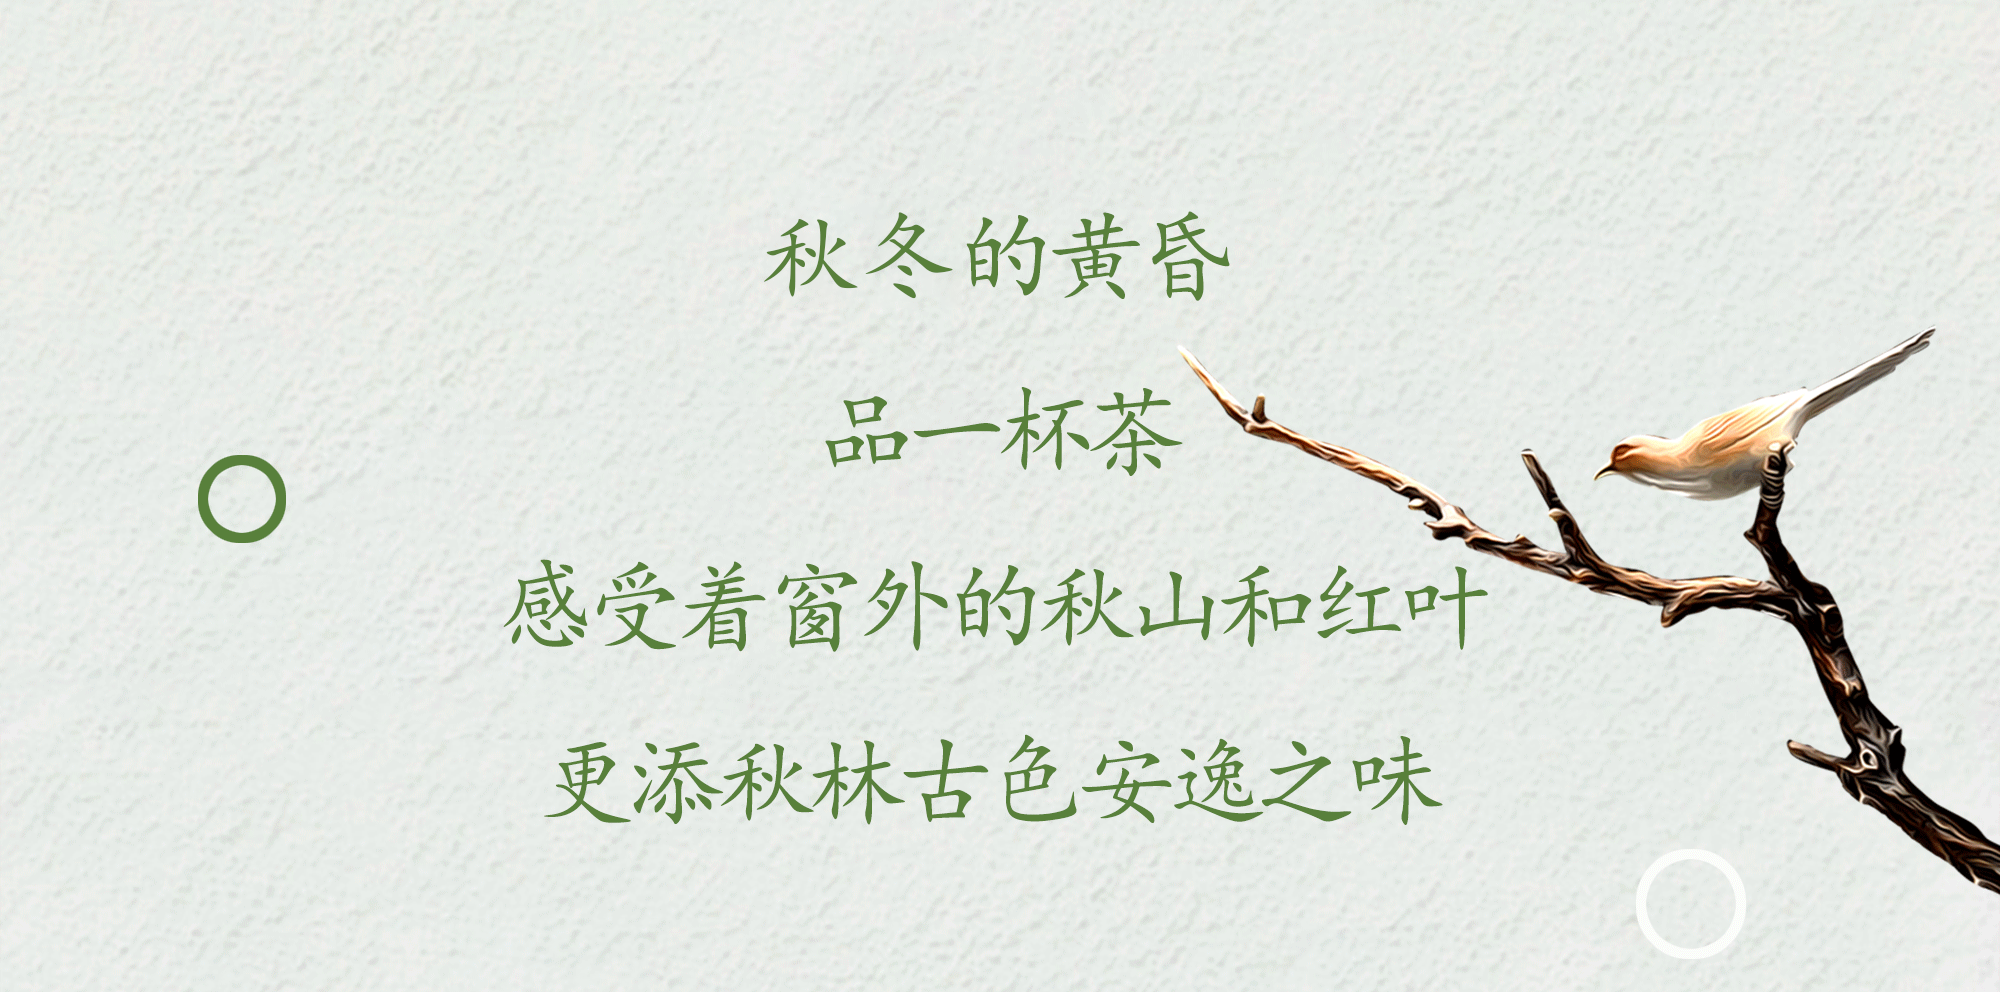 秋冬的黄昏
品一杯茶
感受着窗外的秋山和红叶
更添秋林古色安逸之味